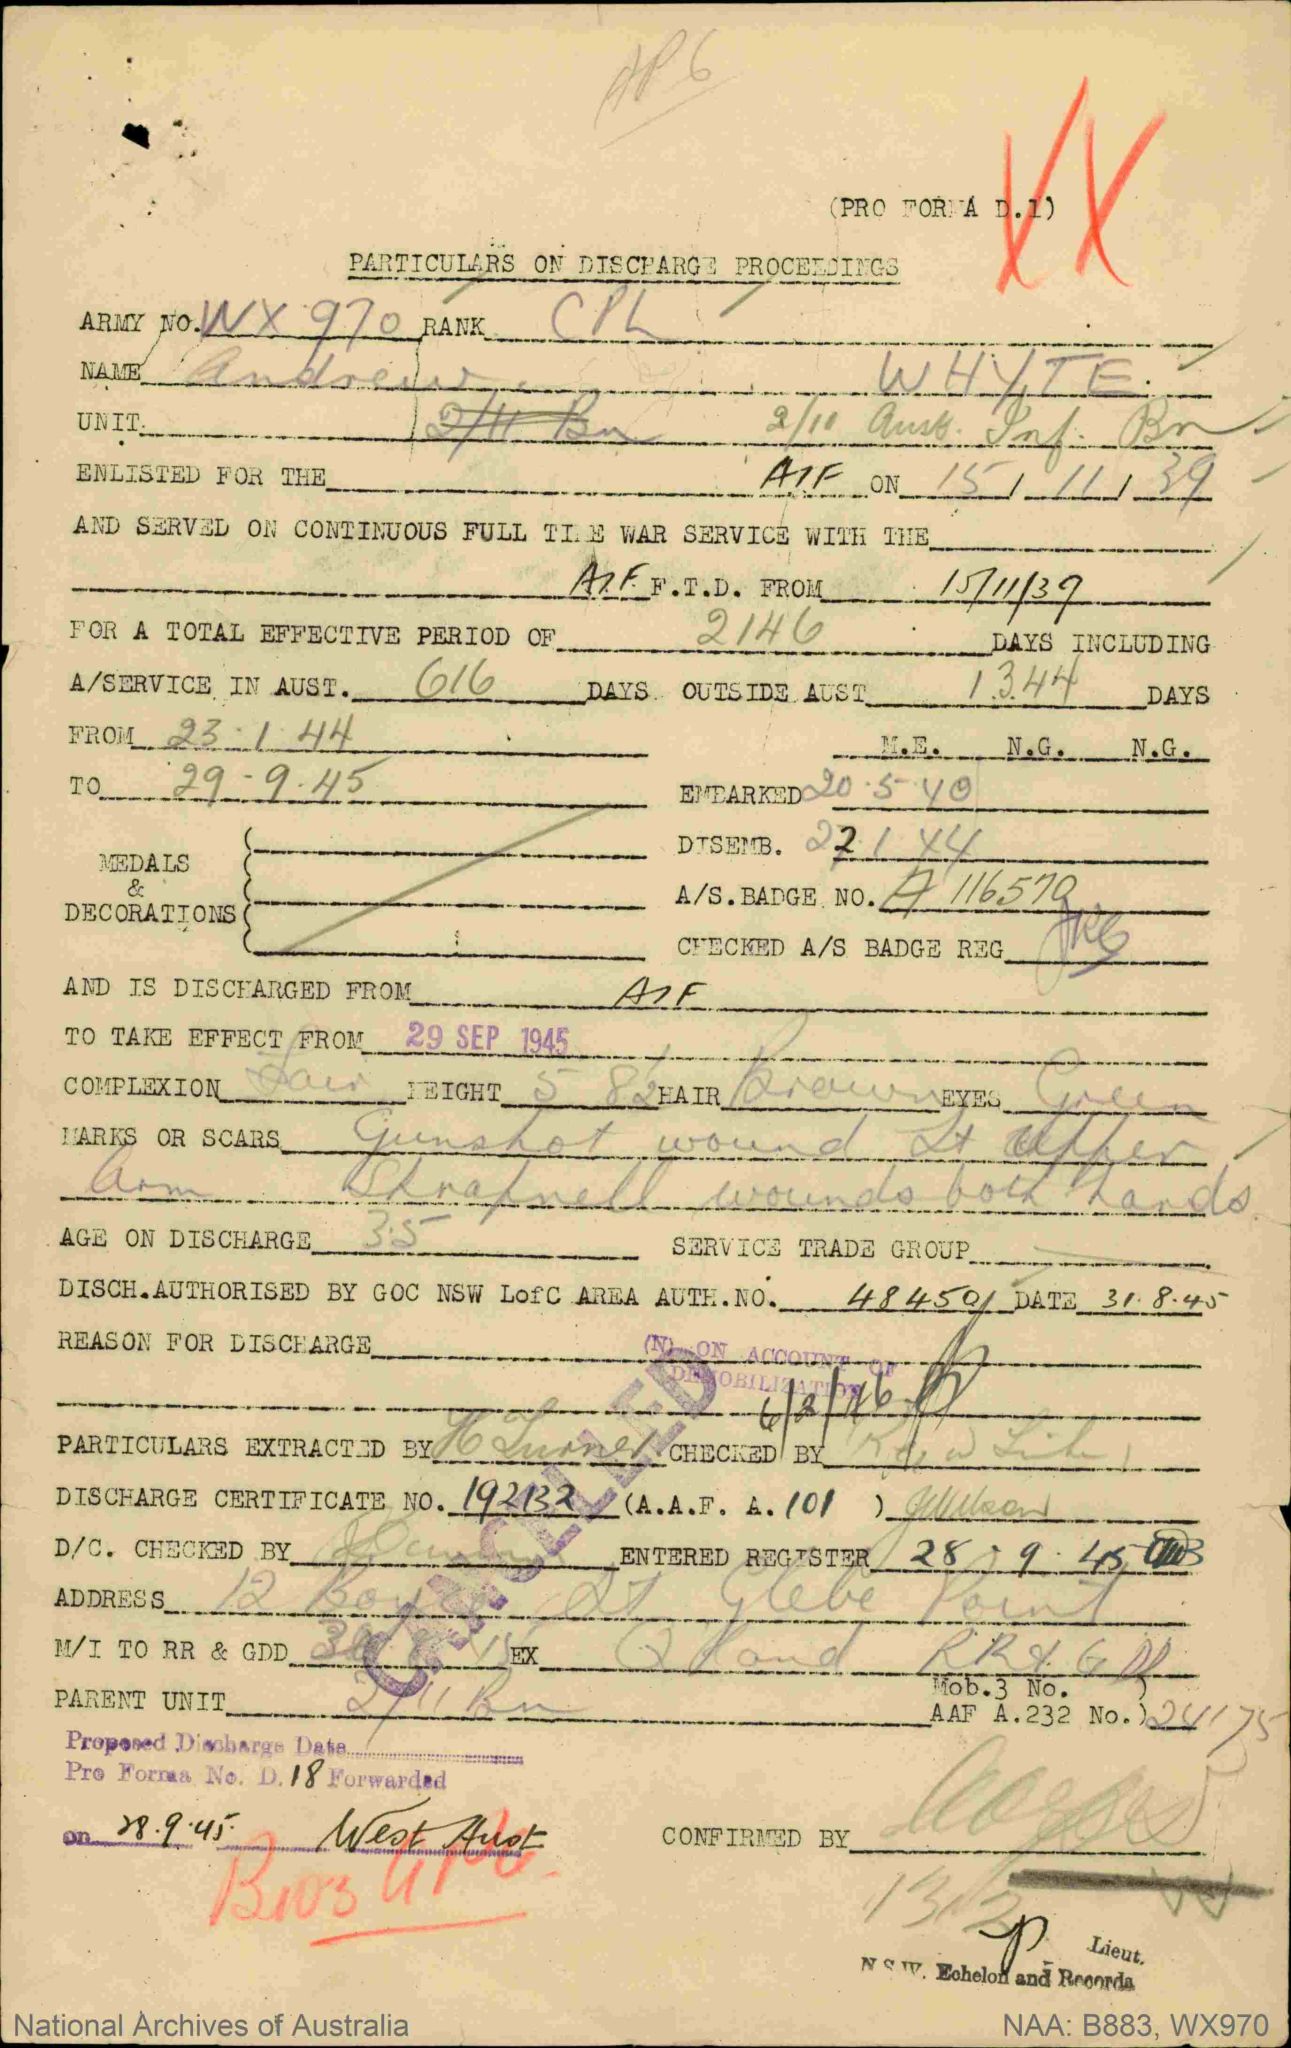 AP 6
XX
(PRO FORMA D.1)
PARTICULARS ON DISCHARGE PROCEEDINGS
ARMY NO. WX 970 RANK CPL
NAME Andrew WHYTE
UNIT 2/11 Bn 2/11 Aust. Inf. Bn
ENLISTED FOR THE AIF ON 15 / 11 / 39
AND SERVED ON CONTINUOUS FULL TIME WAR SERVICE WITH THE
AIF F.T.D. FROM 15/11/39
FOR A TOTAL EFFECTIVE PERIOD OF 2146 DAYS INCLUDING
A/SERVICE IN AUST. 616 DAYS OUTSIDE AUST 1344 DAYS
FROM 23.1.44 M.E. N.G. N.G.
TO 29-9.45 EMBARKED 20.5.40
MEDALS & DECORATIONS DISEMB. 22 1 44
A/S.BADGE NO. A 116579
CHECKED A/S BADGE REG
AND IS DISCHARGED FROM AIF
TO TAKE EFFECT FROM 29 SEP 1945
COMPLEXION Fair HEIGHT 5 8½ HAIR Brown EYES Green
MARKS OR SCARS Gunshot wound Lt Upper
Arm Shrapnell wounds both hands
AGE ON DISCHARGE 35 SERVICE TRADE GROUP
DISCH.AUTHORISED BY GOC NSW LofC AREA AUTH.NO. 48450 DATE 31.8.45
REASON FOR DISCHARGE (N) ON ACCOUNT OF
DEMOBILIZATION
6/2/46
CANCELLED
PARTICULARS EXTRACTED BY H Turner CHECKED BY
DISCHARGE CERTIFICATE NO. 192132 (A.A.F. A. 101 )
D/C. CHECKED BY ENTERED REGISTER 28.9.45
ADDRESS 12 St Glebe Point
M/I TO RR & GDD EX Q'land RR & GDD
PARENT UNIT 2/11 Bn Mob.3 No. )
AAF A.232 No.) 24175
Proposed Discharge Date
Pro Forma No. D. 18 Forwarded
on 28.9.45. West Aust
CONFIRMED BY
B103
13/2
Lieut.
N.S.W. Echelon and Records
National Archives of Australia NAA: B883, WX970